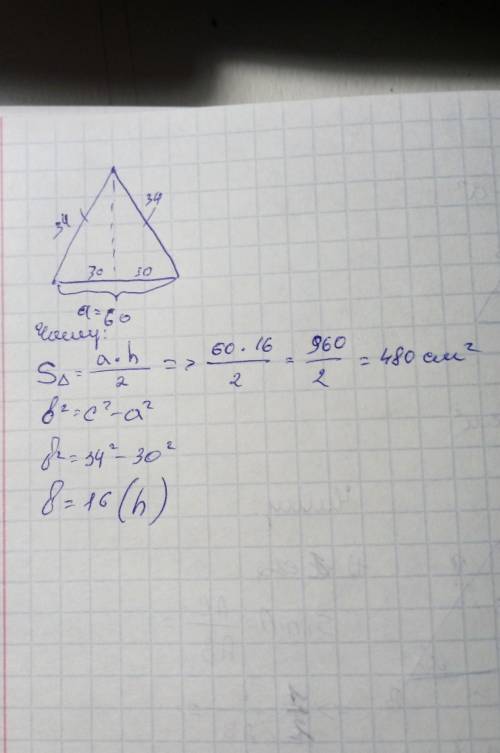 34 34
30 30
a=60
Чому:
S△ = a·h/2 => 60·16/2 = 960/2 = 480 см²
b²=c²-a²
b²=34²-30²
b=16 (h)